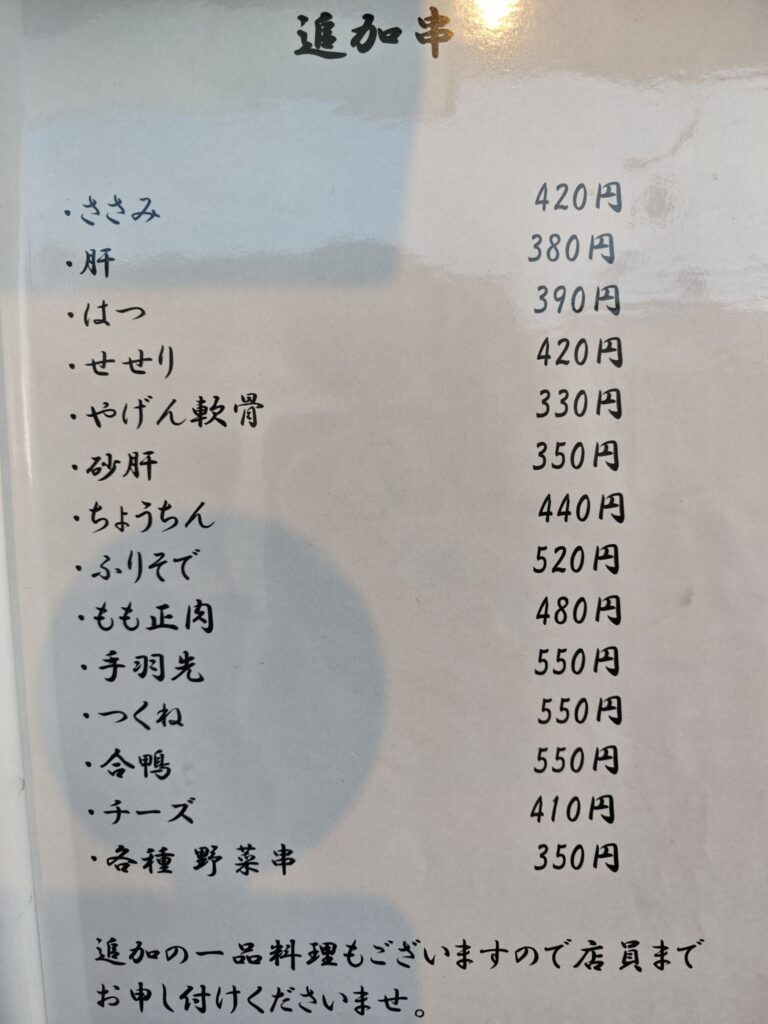 追加串
・ささみ 420円
・肝 380円
・はつ 390円
・せせり 420円
・やげん軟骨 330円
・砂肝 350円
・ちょうちん 440円
・ふりそで 520円
・もも正肉 480円
・手羽先 550円
・つくね 550円
・合鴨 550円
・チーズ 410円
・各種 野菜串 350円
追加の一品料理もございますので店員まで
お申し付けくださいませ。